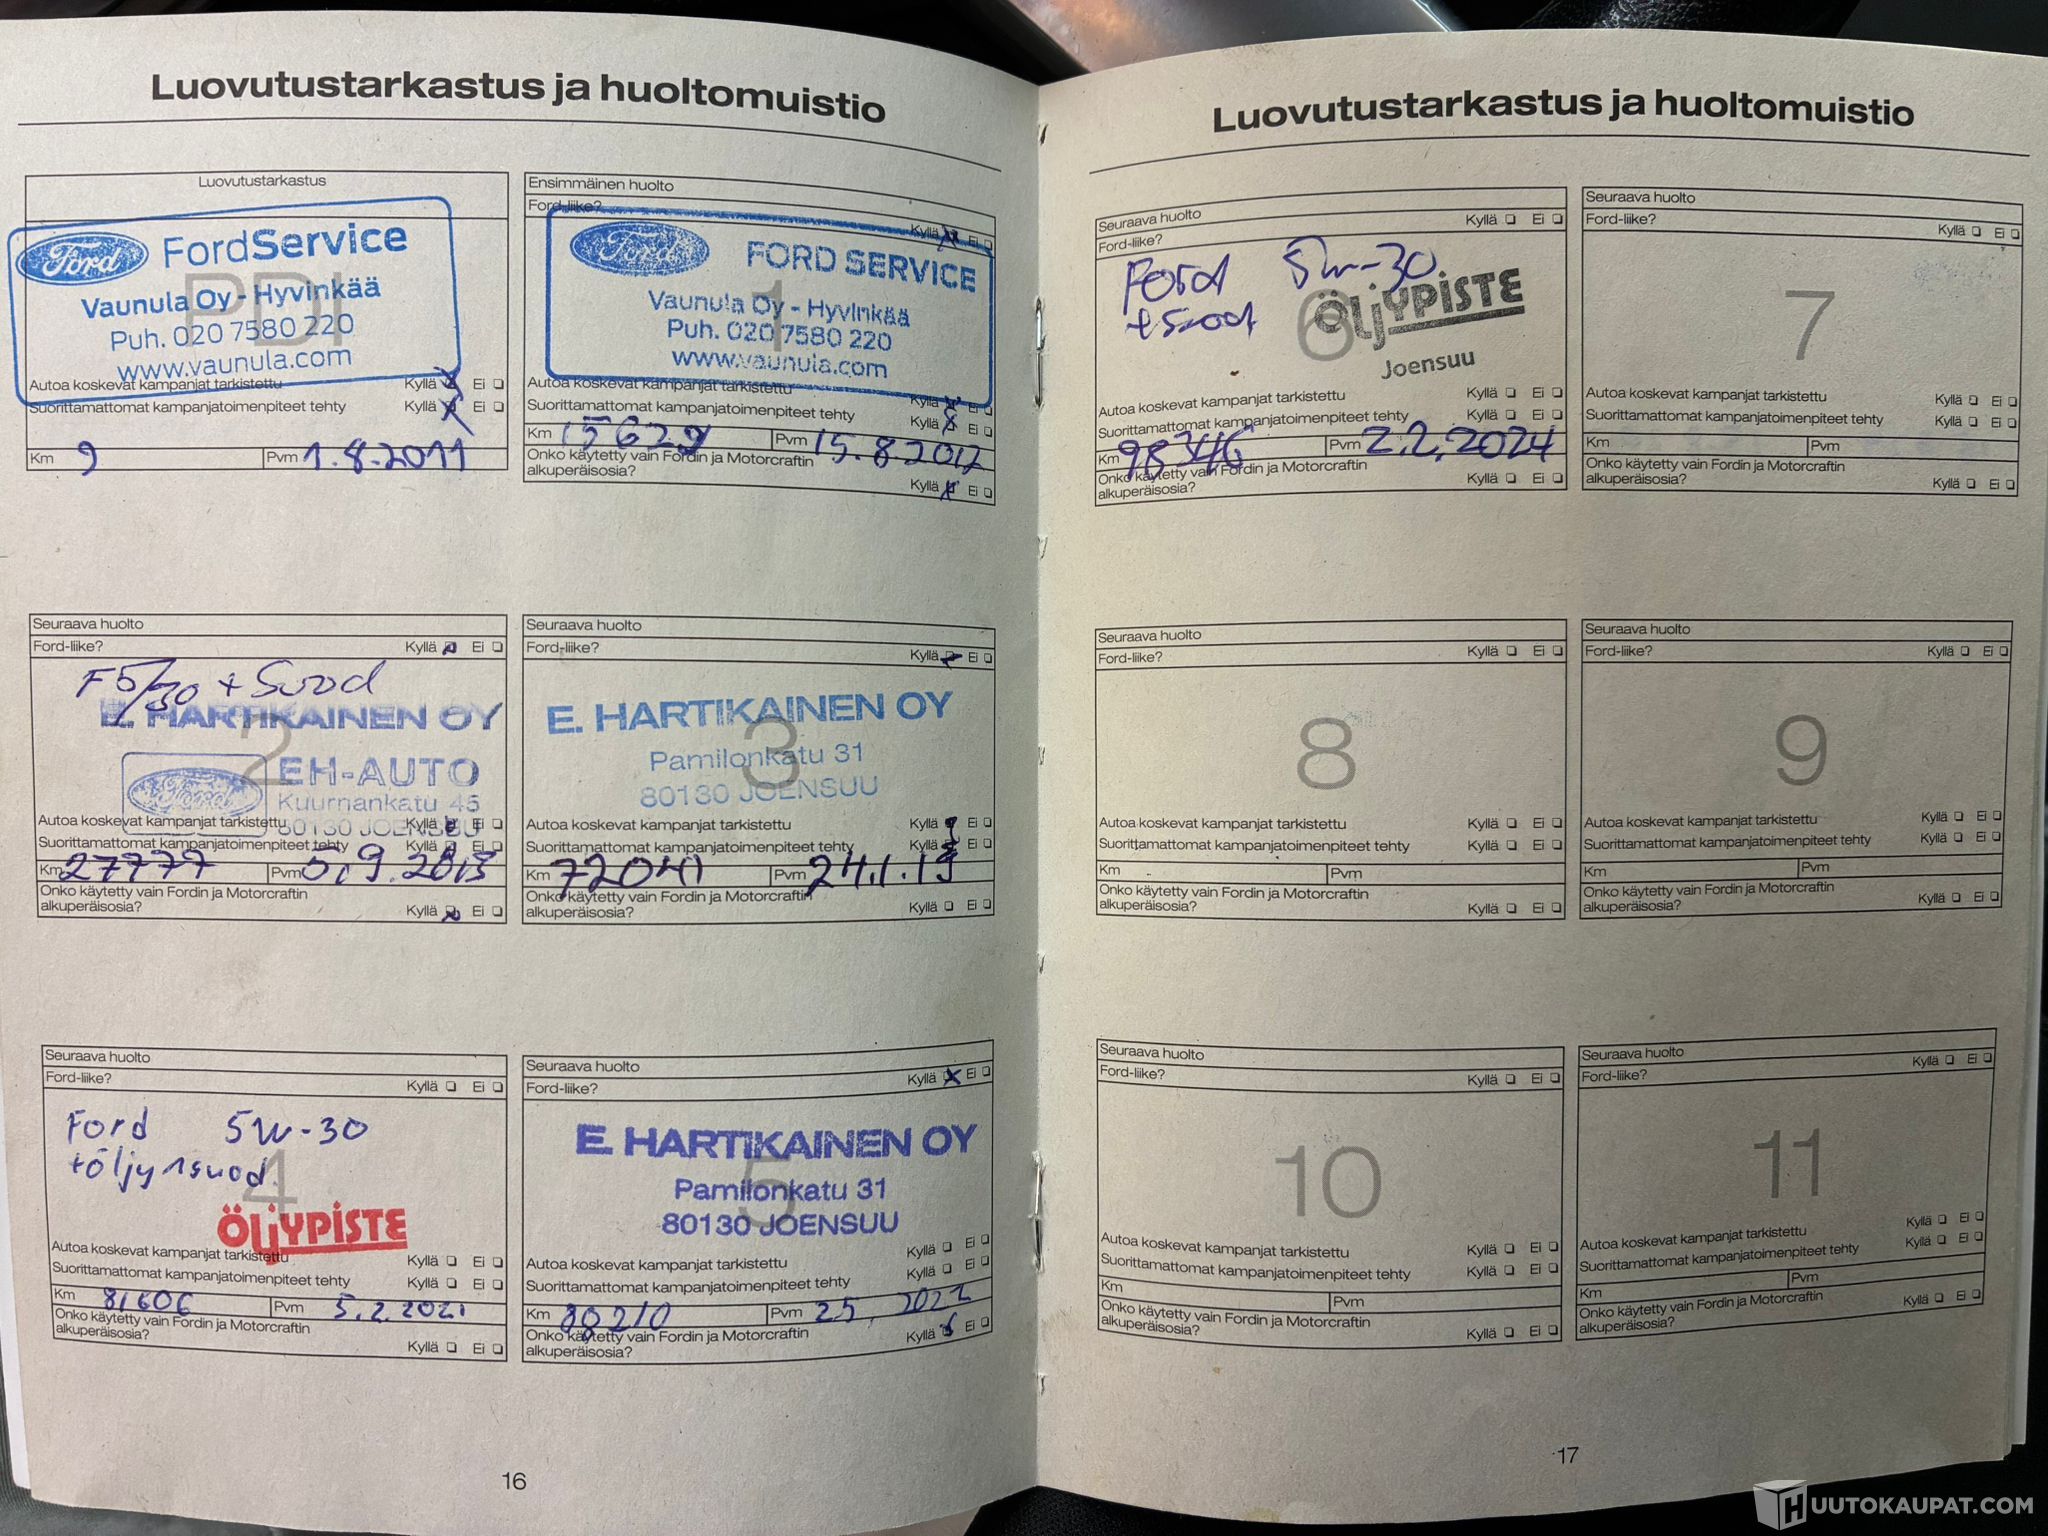 Luovutustarkastus ja huoltomuistio
Luovutustarkastus
Ford
FordService
PDI
Vaunula Oy - Hyvinkää
Puh. 020 7580 220
www.vaunula.com
Autoa koskevat kampanjat tarkistettu Kyllä Ei
Suorittamattomat kampanjatoimenpiteet tehty Kyllä Ei
Km 9 Pvm 1.8.2011
Ensimmäinen huolto
Ford-liike? Kyllä Ei
Ford
FORD SERVICE
1
Vaunula Oy - Hyvinkää
Puh. 020 7580 220
www.vaunula.com
Autoa koskevat kampanjat tarkistettu Kyllä Ei
Suorittamattomat kampanjatoimenpiteet tehty Kyllä Ei
Km 15629 Pvm 15.8.2012
Onko käytetty vain Fordin ja Motorcraftin
alkuperäisosia? Kyllä Ei
Seuraava huolto
Ford-liike? Kyllä Ei
F 5/30 + Suod
E. HARTIKAINEN OY
2
Ford
EH-AUTO
Kuurnankatu 45
80130 JOENSUU
Autoa koskevat kampanjat tarkistettu Kyllä Ei
Suorittamattomat kampanjatoimenpiteet tehty Kyllä Ei
Km 27777 Pvm 5.9.2013
Onko käytetty vain Fordin ja Motorcraftin
alkuperäisosia? Kyllä Ei
Seuraava huolto
Ford-liike? Kyllä Ei
E. HARTIKAINEN OY
3
Pamilonkatu 31
80130 JOENSUU
Autoa koskevat kampanjat tarkistettu Kyllä Ei
Suorittamattomat kampanjatoimenpiteet tehty Kyllä Ei
Km 72041 Pvm 24.1.19
Onko käytetty vain Fordin ja Motorcraftin
alkuperäisosia? Kyllä Ei
Seuraava huolto
Ford-liike? Kyllä Ei
Ford 5W-30
+öljynsuod.
4
ÖLJYPISTE
Autoa koskevat kampanjat tarkistettu Kyllä Ei
Suorittamattomat kampanjatoimenpiteet tehty Kyllä Ei
Km 81606 Pvm 5.2.2021
Onko käytetty vain Fordin ja Motorcraftin
alkuperäisosia? Kyllä Ei
Seuraava huolto
Ford-liike? Kyllä Ei
E. HARTIKAINEN OY
5
Pamilonkatu 31
80130 JOENSUU
Autoa koskevat kampanjat tarkistettu Kyllä Ei
Suorittamattomat kampanjatoimenpiteet tehty Kyllä Ei
Km 88210 Pvm 25. 2022
Onko käytetty vain Fordin ja Motorcraftin
alkuperäisosia? Kyllä Ei
16
Luovutustarkastus ja huoltomuistio
Seuraava huolto
Ford-liike? Kyllä Ei
Ford 5W-30
+ Suod
6
ÖLJYPISTE
Joensuu
Autoa koskevat kampanjat tarkistettu Kyllä Ei
Suorittamattomat kampanjatoimenpiteet tehty Kyllä Ei
Km 98346 Pvm 2.2.2024
Onko käytetty vain Fordin ja Motorcraftin
alkuperäisosia? Kyllä Ei
Seuraava huolto
Ford-liike? Kyllä Ei
7
Autoa koskevat kampanjat tarkistettu Kyllä Ei
Suorittamattomat kampanjatoimenpiteet tehty Kyllä Ei
Km Pvm
Onko käytetty vain Fordin ja Motorcraftin
alkuperäisosia? Kyllä Ei
Seuraava huolto
Ford-liike? Kyllä Ei
8
Autoa koskevat kampanjat tarkistettu Kyllä Ei
Suorittamattomat kampanjatoimenpiteet tehty Kyllä Ei
Km Pvm
Onko käytetty vain Fordin ja Motorcraftin
alkuperäisosia? Kyllä Ei
Seuraava huolto
Ford-liike? Kyllä Ei
9
Autoa koskevat kampanjat tarkistettu Kyllä Ei
Suorittamattomat kampanjatoimenpiteet tehty Kyllä Ei
Km Pvm
Onko käytetty vain Fordin ja Motorcraftin
alkuperäisosia? Kyllä Ei
Seuraava huolto
Ford-liike? Kyllä Ei
10
Autoa koskevat kampanjat tarkistettu Kyllä Ei
Suorittamattomat kampanjatoimenpiteet tehty Kyllä Ei
Km Pvm
Onko käytetty vain Fordin ja Motorcraftin
alkuperäisosia? Kyllä Ei
Seuraava huolto
Ford-liike? Kyllä Ei
11
Autoa koskevat kampanjat tarkistettu Kyllä Ei
Suorittamattomat kampanjatoimenpiteet tehty Kyllä Ei
Km Pvm
Onko käytetty vain Fordin ja Motorcraftin
alkuperäisosia? Kyllä Ei
17
HUUTOKAUPAT.COM